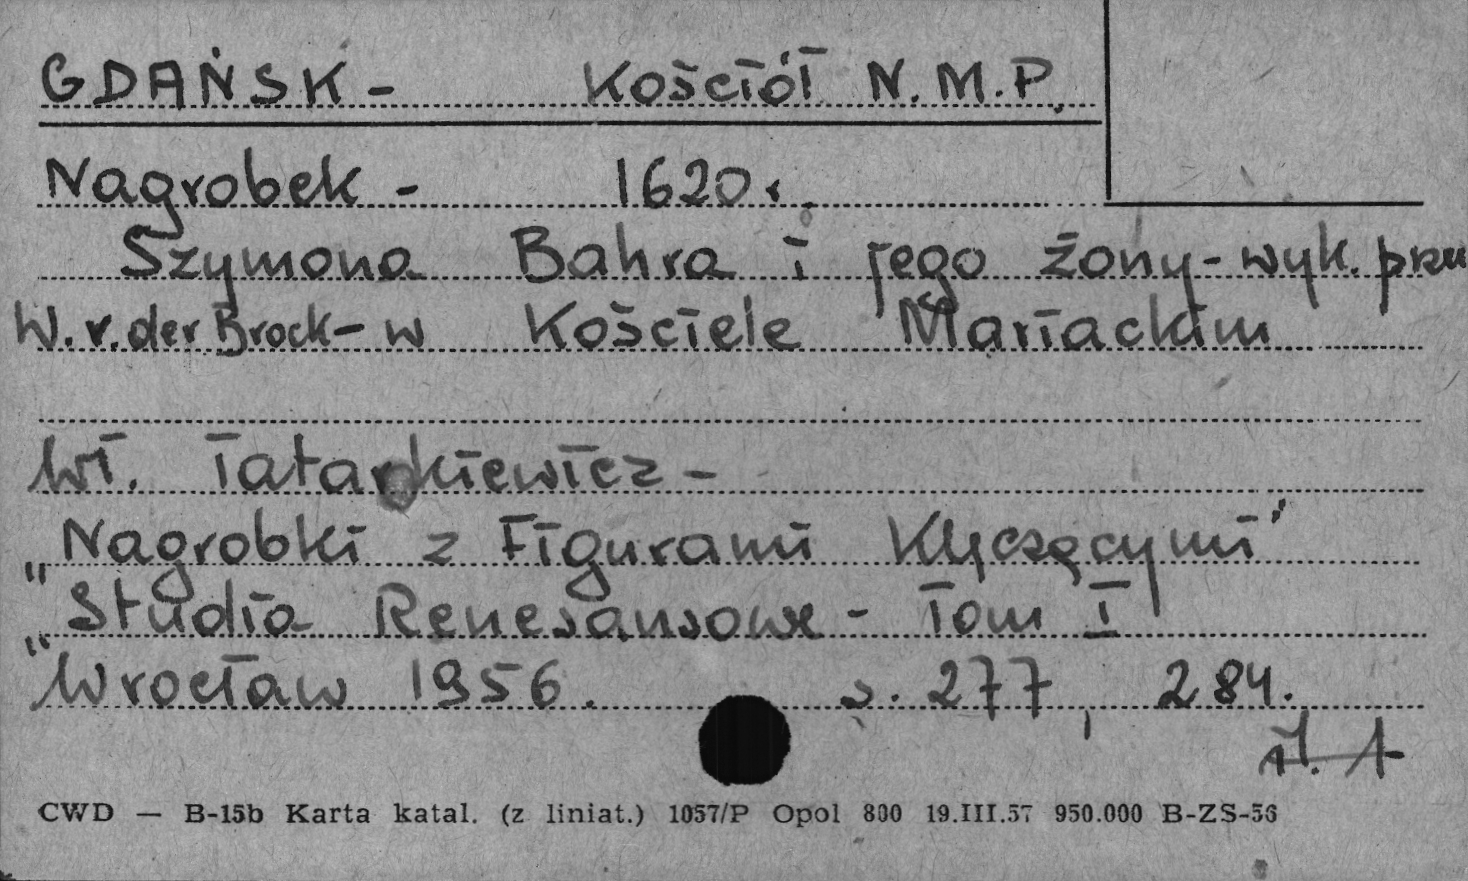 GDAŃSK - Kościół N.M.P.
Nagrobek - 1620 r.
Szymona Bahra i jego żony - wyk. przez
W. v. der Brock - w Kościele Mariackim
Wł. Tatarkiewicz -
"Nagrobki z Figurami Klęczącymi"
"Studia Renesansowe - Tom I
Wrocław 1956. s. 277, 284.
CWD — B-15b Karta katal. (z liniat.) 1057/P Opol 800 19.III.57 950.000 B-ZS-56